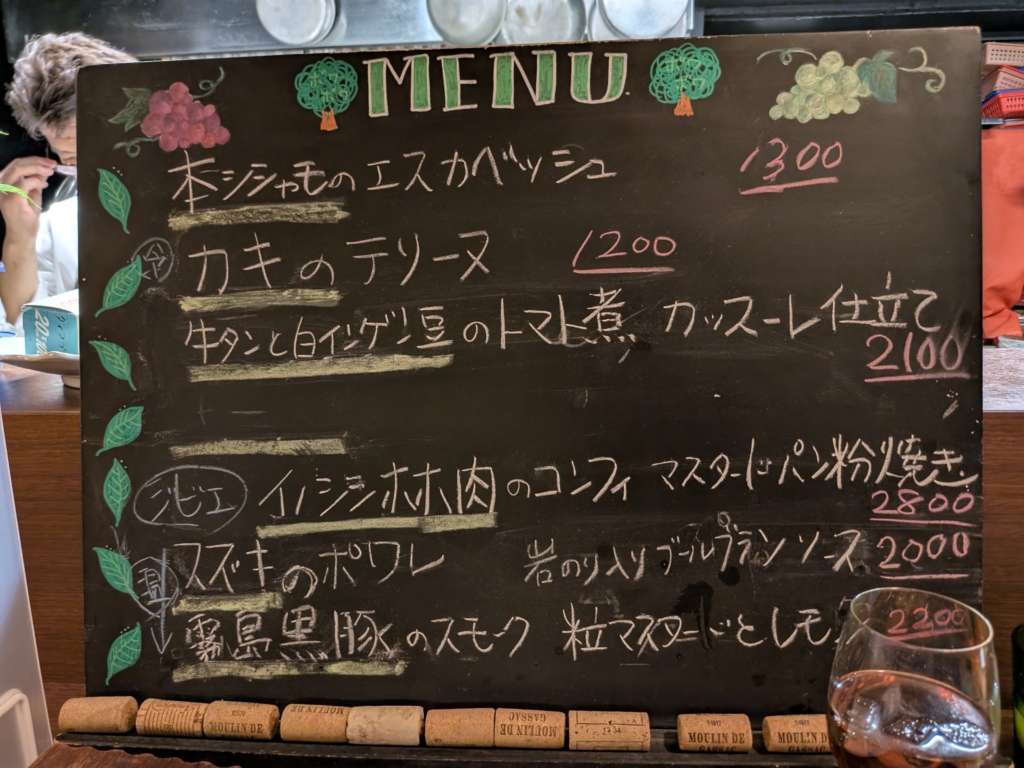 MENU
本シシャモのエスカベッシュ 1300
冷 カキのテリーヌ 1200
牛タンと白インゲン豆のトマト煮 カッスーレ仕立て
2100
ジビエ イノシシホホ肉のコンフィ マスタードパン粉焼き
2800
スズキのポワレ 岩のり入りブールブランソース 2000
温
霧島黒豚のスモーク 粒マスタードとレモン 2200
MOULIN DE
MOULIN DE
GASSAC
MOULIN DE
MOULIN DE
GASSAC